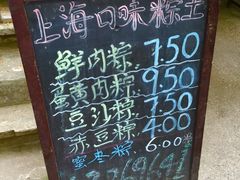 上海口味粽王
鲜肉粽 7.50
蛋黄肉粽 9.50
豆沙粽 7.50
赤豆粽 4.00
蜜枣粽 6.00